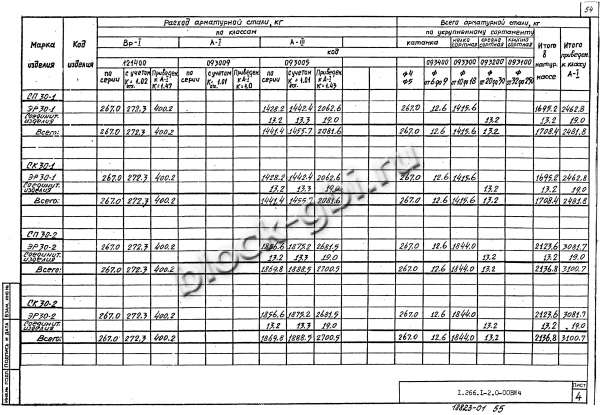 54
Расход арматурной стали, кг Всего арматурной стали, кг
по классам по укрупненному сортаменту
Марка изделия Код изделия Вр-I А-I А-III катанка мелко сортная средне сортная крупно сортная Итого в натур. массе Итого приведен. к классу А-I
код
121400 093009 093005 093400 093300 093200 093100
по серии с учетом К=1.02 Приведен. к А-I К=1.47 по серии с учетом К=1.01 Приведен. к А-I К=1.0 по серии с учетом К=1.01 Приведен. к А-I К=1.43 ф4 ф5 ф от 6 до 9 ф от 10 до 18 ф от 20 до 30 ф от 32 до 250
СП 30-1
ЭР30-1 267.0 272.3 400.2 1428.2 1442.4 2062.6 267.0 12.6 1415.6 1695.2 2462.8
Соединит. изделия 13.2 13.3 19.0 13.2 13.2 19.0
Всего: 267.0 272.3 400.2 1441.4 1455.7 2081.6 267.0 12.6 1415.6 13.2 1708.4 2481.8
СК 30-1
ЭР30-1 267.0 272.3 400.2 1428.2 1442.4 2062.6 267.0 12.6 1415.6 1695.2 2462.8
Соединит. изделия 13.2 13.3 19.0 13.2 13.2 19.0
Всего: 267.0 272.3 400.2 1441.4 1455.7 2081.6 267.0 12.6 1415.6 13.2 1708.4 2481.8
СП 30-2
ЭР30-2 267.0 272.3 400.2 1856.6 1875.2 2681.5 267.0 12.6 1844.0 2123.6 3081.7
Соединит. изделия 13.2 13.3 19.0 13.2 13.2 19.0
Всего: 267.0 272.3 400.2 1869.8 1888.5 2700.5 267.0 12.6 1844.0 13.2 2136.8 3100.7
СК 30-2
ЭР30-2 267.0 272.3 400.2 1856.6 1875.2 2681.5 267.0 12.6 1844.0 2123.6 3081.7
Соединит. изделия 13.2 13.3 19.0 13.2 13.2 19.0
Всего: 267.0 272.3 400.2 1869.8 1888.5 2700.5 267.0 12.6 1844.0 13.2 2136.8 3100.7
block-gbi.ru
Инв. № подл. Подпись и дата Взам. инв. №
1.266.1-2.0-00ВМ4
Лист
4
18823-01 55